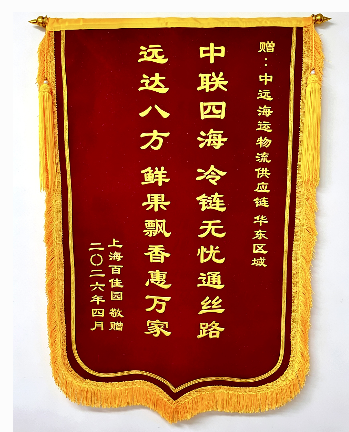 赠：中远海运物流供应链 华东区域
中联四海 冷链无忧通丝路
远达八方 鲜果飘香惠万家
上海百佳园 敬赠
二〇二六年四月